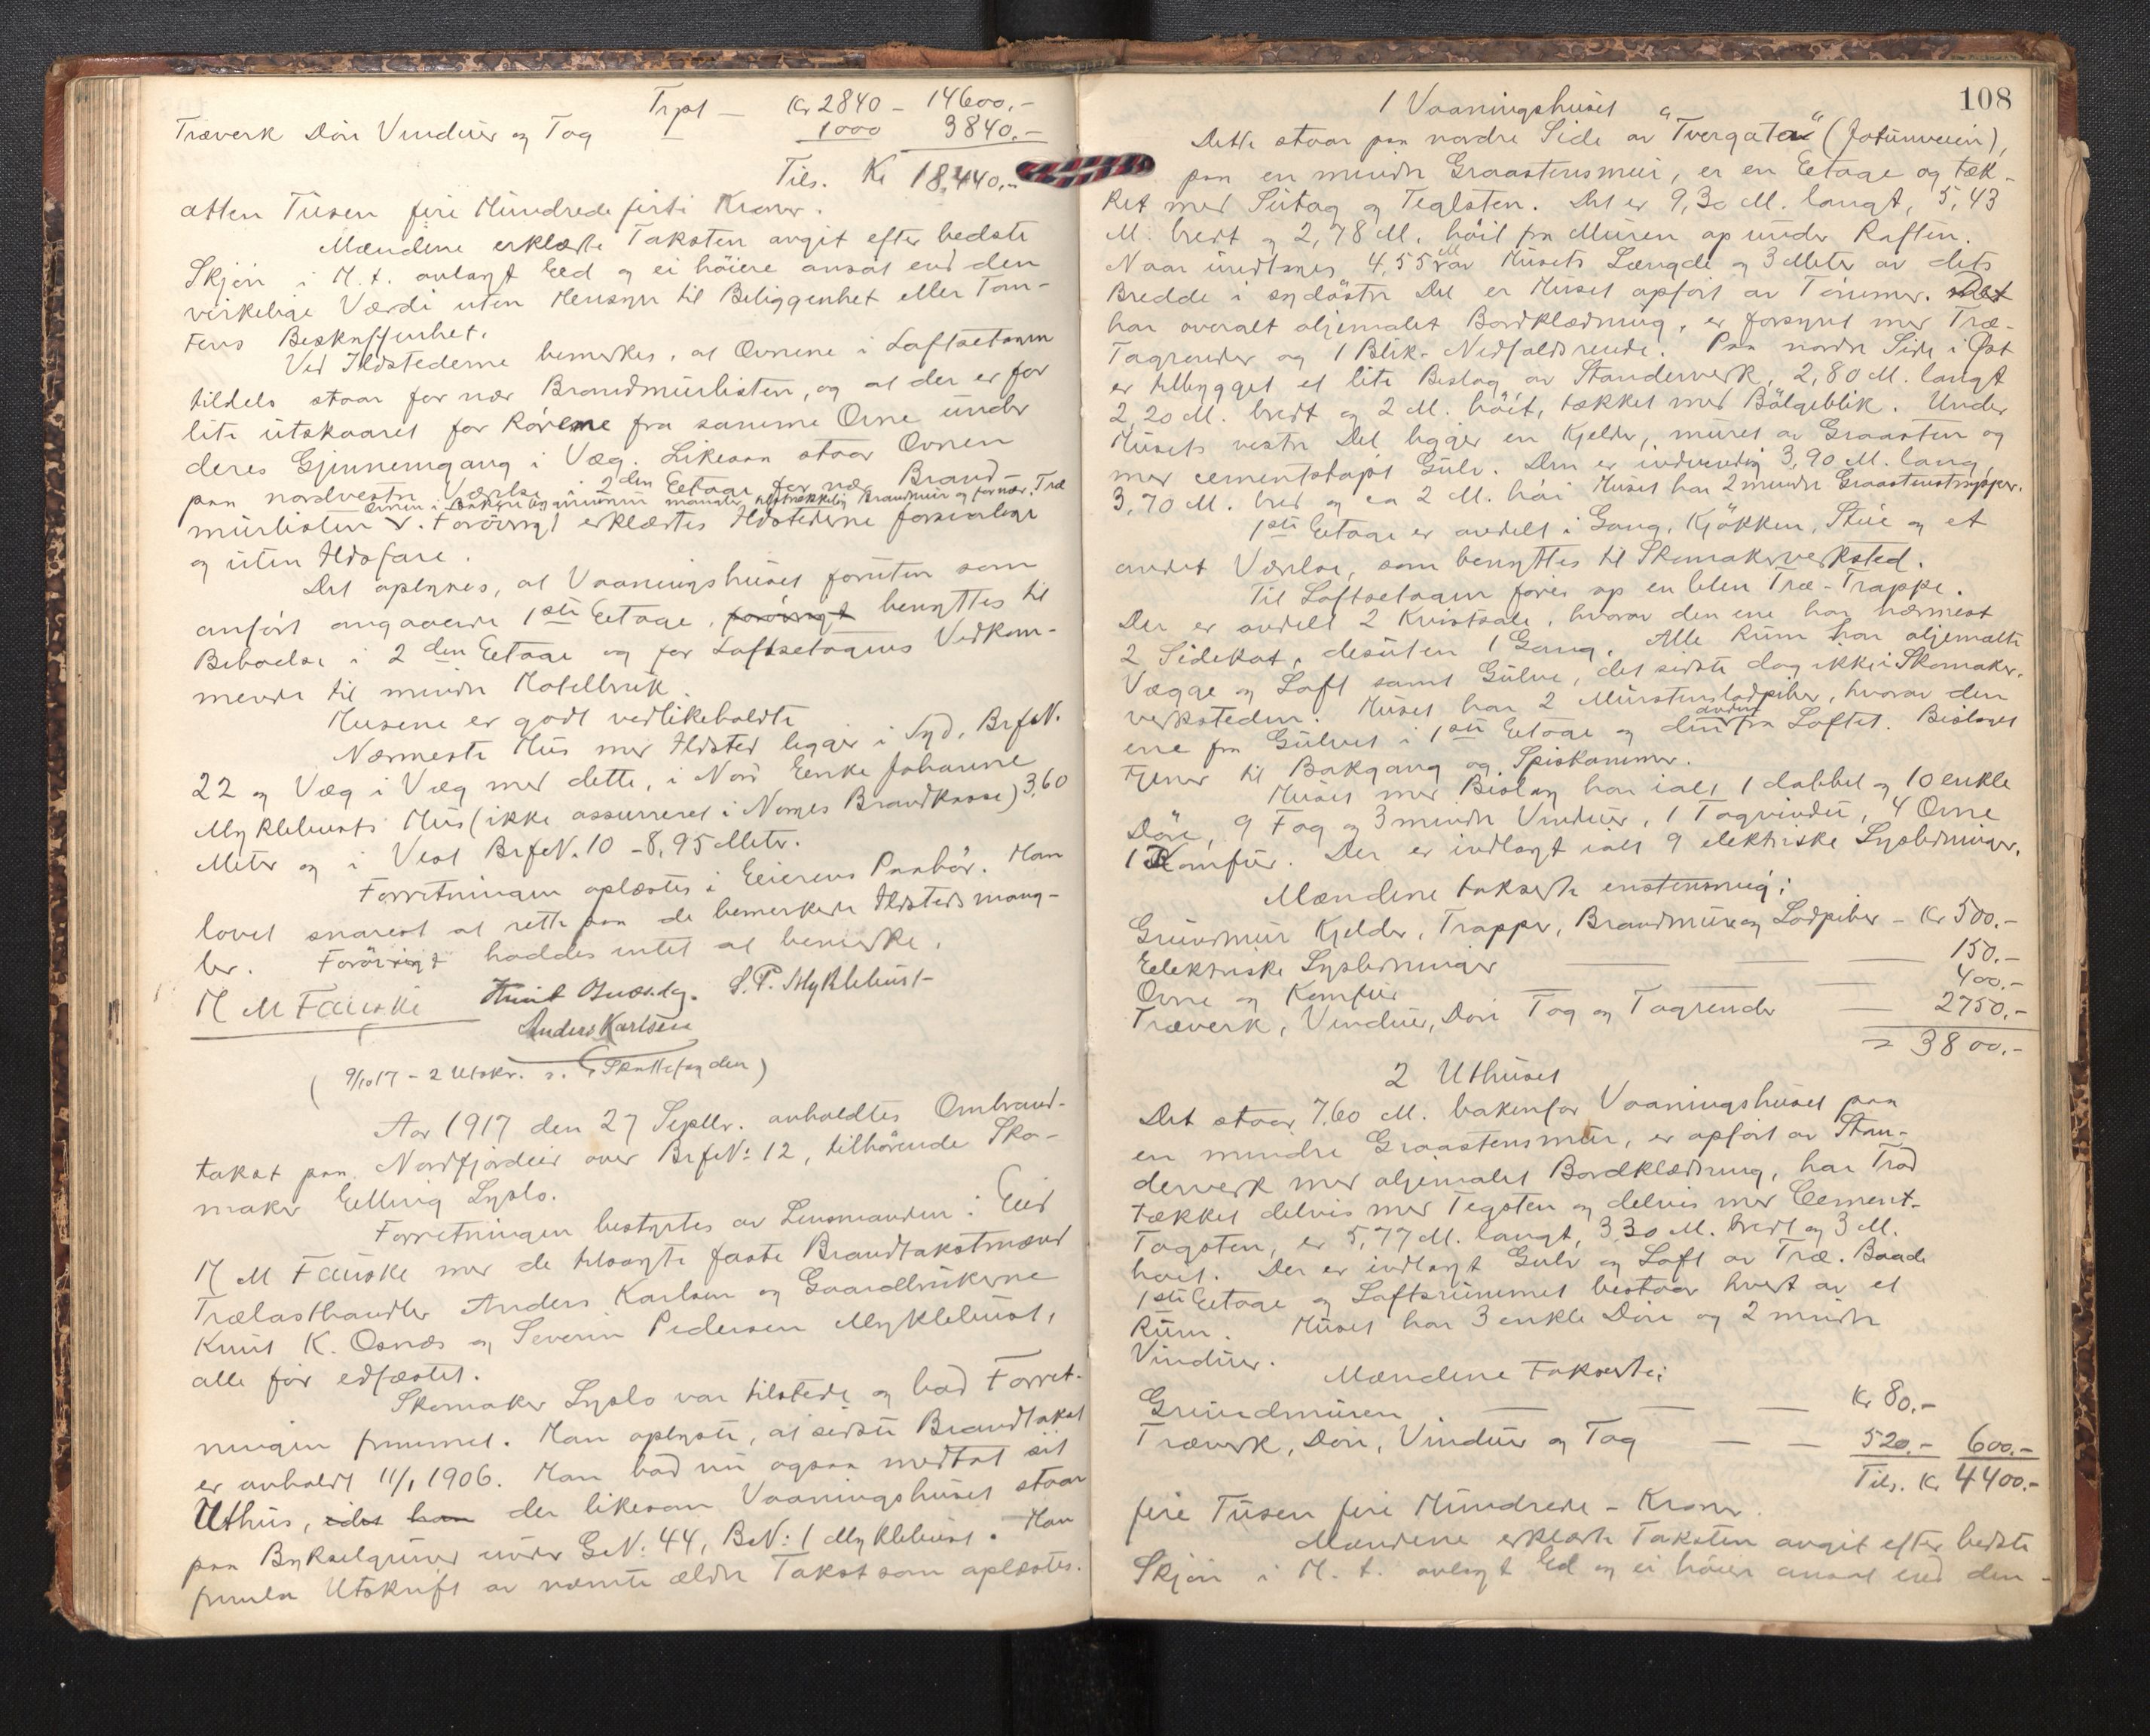 Trpt — Kr 2840 — 14600,-
Træverk Döre Vinduer og Tag — 1000 3840.-
Tils. Kr 18,440,-
atten Tusen fire Hundrede firti Kroner.
Mændene erklærte Taksten avgit efter bedste
Skjön i H. t. avlagt Eed og ei höiere ansat end den
virkelige Værdi uten Hensyn til Beliggenhet eller Tom-
tens Beskaffenhet.
Ved Ildstederne bemerkes, at Ovnene i Loftsetagen
tildels staar for nær Brandmurlisten, og at der er for
lite utskaaret for Rörene fra samme Ovne under
deres Gjennemgang i Væg. Likesaa staar Ovnen
paa nordvestre Værelse i 2den Eetage for nær Brand-
Ovnen i mangler tilstrækkelig Brandmur og for nær Træ
murlisten. Forövrigt erklærtes Ildstederne forsvarlige
og uten Ildsfare.
Det oplyses, at Vaaningshuset foruten som
anfört angaaende 1ste Eetage, forövrigt benyttes til
Beboelse i 2den Eetage og for Loftsetagens Vedkom-
mende til mindre Hotelbruk.
Husene er godt vedlikeholdte
Nærmeste Hus med Ildsted ligger i Syd, BrfN.
22 og Væg i Væg med dette, i Nord Enke Johanne
Myklebusts Hus (ikke assurreret i Norges Brandkasse) 3,60
Meter og i Vest BrfN. 10 - 8,95 Meter.
Forretningen oplæstes i Eierens Paahör. Han
lovet snarest at rette paa de bemerkede Ildstedsmang-
ler. Forövrigt haddes intet at bemerke.
H M Fauske Knut Osnes. S. P. Myklebust
Anders Karlsen
(9/10 17 - 2 Utskr. s. Skattefogden)
Aar 1917 den 27 Septbr. avholdtes Ombrand-
takst paa Nordfjordeid over BrfN: 12, tilhörende Sko-
maker Elling Lyslo.
Forretningen bestyrtes av Lensmanden i Eid
H M Fauske med de tilsagte faste Brandtakstmænd
Trælasthandler Anders Karlsen og Gaardbrukerne
Knut K. Osnæs og Severin Pedersen Myklebust,
alle för edfæstet.
Skomaker Lyslo var tilstede og bad Forret-
ningen fremmet. Han oplyste, at sidste Brandtakst
er avholdt 11/1 1906. Han bad nu ogsaa medtat sit
Uthus, idet han der likesom Vaaningshuset staar
paa Bykselgrund under GN: 44, BN: 1 Myklebust. Han
fremla Utskrift av nævnte ældre Takst som oplæstes.
108
1 Vaaningshuset
Dette staar paa nordre Side av "Tvergaten" (Jotunveien),
paa en mindre Graastensmur, er en Eetage og tæk-
ket med Sutag og Teglsten. Det er 9,30 M. langt, 5,43
M. bredt og 2,78 M. höit fra Muren op under Raften.
Naar undtages 4,55 M. av Husets Længde og 3 Meter av dets
Bredde i sydöstre Del er Huset opfört av Tömmer. Det
har overalt oljemalet Bordklædning, er forsynt med Træ-
Tagrender og 1 Blik-Nedfaldsrende. Paa nordre Side i Öst
er tilbygget et lite Bislag av Standerverk, 2,80 M. langt
2,20 M. bredt og 2 M. höit, tækket med Bölgeblik. Under
Husets vestre Del ligger en Kjelder, muret av Graasten og
med cementstöpt Gulv. Den er indvendig 3,90 M. lang,
3,70 M. bred og ca 2 M. höi. Huset har 2 mindre Graastenstrapper.
1ste Eetage er avdelt i Gang, Kjökken, Stue og et
andet Værelse, som benyttes til Skomakerverksted.
Til Loftsetagen förer op en liten Træ-Trappe.
Der er avdelt 2 Kvistsale, hvorav den ene har nærmest
2 Sidekot, desuten 1 Gang. Alle Rum har oljemalte
Vægge og Loft samt Gulve, det sidste dog ikke i Skomaker-
verksteden. Huset har 2 Murstenslodpiber, hvorav den
ene fra Gulvet i 1ste Eetage og den anden fra Loftet. Bislaget
tjener til Bakgang og Spiskammer.
Huset med Bislag har ialt 1 dobbel og 10 enkle
Döre, 9 Fag og 3 mindre Vinduer, 1 Tagvindu, 4 Ovne
1 Komfur. Der er indlagt ialt 9 elektriske Lysledninger.
Mændene takserte enstemmig:
Grundmur Kjelder, Trapper, Brandmure og Lodpiber — Kr 500.-
Elektriske Lysledninger — 150.-
Ovne og Komfur — 400.-
Træverk, Vinduer, Döre Tag og Tagrender — 2750.-
= 3800.-
2 Uthuset
Det staar 7,60 M. bakenfor Vaaningshuset paa
en mindre Graastensmur, er opfört av Stan-
derverk med oljemalet Bordklædning, har Trod
tækket delvis med Tegsten og delvis med Cement-
Tagsten, er 5,77 M. langt, 3,30 M. bredt og 3 M.
höit. Der er indlagt Gulv og Loft av Træ. Baade
1ste Eetage og Loftsrummet bestaar hvert av et
Rum. Huset har 3 enkle Döre og 2 mindre
Vinduer.
Mændene Takserte:
Grundmuren — Kr 80.-
Træverk, Döre, Vinduer og Tag — 520.- 600.-
Tils. Kr 4400.-
fire Tusen fire Hundrede - Kroner.
Mændene erklærte Taksten avgit efter bedste
Skjön i H. t. avlagt Ed og ei höiere ansat end den